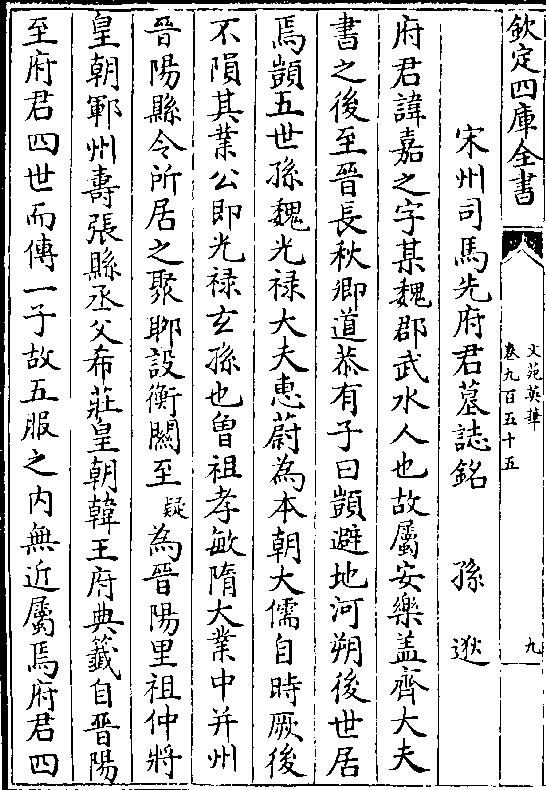 欽定四庫全書
文苑英華
卷九百五十五
九
宋州司馬先府君墓誌銘 孫逖
府君諱嘉之字某魏郡武水人也故屬安樂盖齊大夫
書之後至晉長秋卿道恭有子曰顗避地河朔後世居
焉顗五世孫魏光禄大夫惠蔚為本朝大儒自時厥後
不隕其業公即光禄玄孫也曽祖孝敏隋大業中并州
晉陽縣令所居之聚聊設衡闗至疑為晉陽里祖仲將
皇朝鄆州壽張縣丞父希莊皇朝韓王府典籖自晉陽
至府君四世而傳一子故五服之内無近屬焉府君四